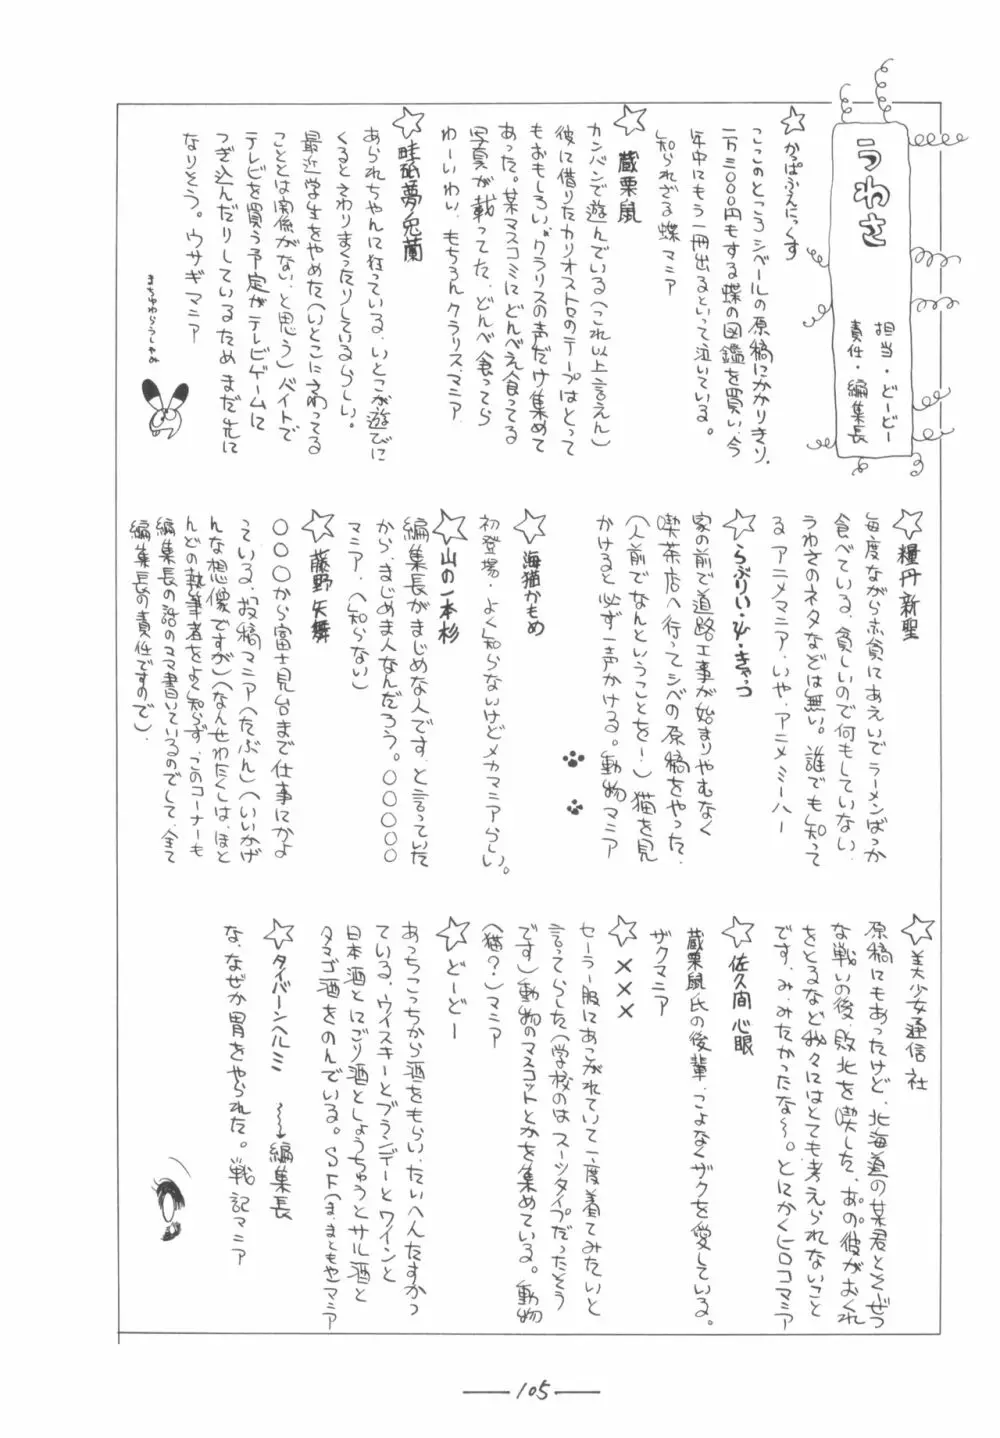 うわさ
担当・どーどー
責任・編集長
☆かっぱふぇにっくす
ここのところシベールの原稿にかかりきり、
一万三〇〇〇円もする蝶の図鑑を買い、今
年中にもう一冊出るといって泣いている。
知られざる蝶マニア
☆蔵栗鼠
カンバンで遊んでいる(これ以上言えん)
彼に借りたカリオストロのテープはとって
もおもしろい。クラリスの声だけ集めて
あった。某マスコミにどんべえ食ってる
写真が載ってた、どんべ食ってら
わーいわい、もちろんクラリス・マニア
☆畦舐夢兎蘭
あられちゃんに狂っている、いとこが遊びに
くるとさわりまくったりしているらしい。
最近学生をやめた(いとこにさわってる
こととは関係がない、と思う)バイトで
テレビを買う予定がテレビゲームに
つぎ込んだりしているためまだ先に
なりそう。ウサギマニア
☆糧丹新聖
毎度ながら赤貧にあえいでラーメンばっか
食べている、貧しいので何もしていない、
うわさのネタなどは無い。誰でも知って
るアニメマニア・いや、アニメミーハー
☆らぶりい・ψ・きゃっつ
家の前で道路工事が始まりやむなく
喫茶店へ行ってシベの原稿をやった、
(人前でなんということを!)猫を見
かけると必ず一声かける。動物マニア
☆海猫かもめ
初登場・よく知らないけどメカマニアらしい。
☆山の一本杉
編集長がまじめな人です、と言っていた
から、まじめ人なんだろう。〇〇〇〇〇
マニア、(知らない)
☆藤野矢舞
〇〇〇から富士見台まで仕事にかよ
っている、投稿マニア(たぶん)(いいかげ
んな想像ですが)(なんせわたくしは、ほと
んどの執筆者をよく知らず、このコーナーも
編集長の話のママ書いているのでして、全て
編集長の責任ですので)、
☆美少女通信社
原稿にもあったけど、北海道の某君とそーぜつ
な戦いの後、敗北を喫した、あの彼がおくれ
をとるなど我々にはとても考えられないこと
です、み、みたかったな〜。とにかくヒロコマニア
☆佐久間心眼
蔵栗鼠氏の後輩、こよなくザクを愛している。
ザクマニア
☆×××
セーラー服にあこがれていて一度着てみたいと
言ってらした(学校のはスーツタイプだったそう
です)動物のマスコットとかを集めている。動物
(猫?)マニア
☆どーどー
あっちこっちから酒をもらい、たいへんたすかっ
ている、ウイスキーとブランデーとワインと
日本酒とにごり酒としょうちゅうとサル酒と
タマゴ酒をのんでいる。SF(ま、まともや)マニア
☆タイバーンヘルミ　〜〜→編集長
な、なぜか胃をやられた。戦記マニア
105